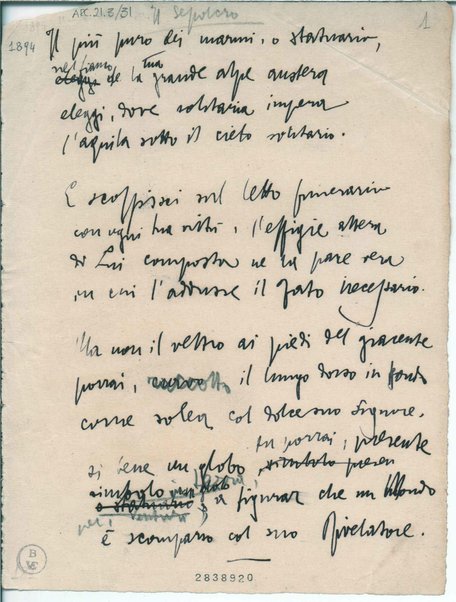 ARC. 21.8/31 Il Sepolcro 1
1894
Il più puro dei marmi, o statuario,
nel fianco de la tua grande alpe austera
eleggi, dove solitaria impera
l'aquila sotto il cielo solitario.
E scolpisci sul letto funerario
con ogni tua virtù, l'effigie altera
di Lui composta ne la pace vera
in cui l'addusse il Fato necessario.
Ma non il veltro ai piedi del giacente
porrai, il lungo dorso in tondo
come solea col dolce suo Signore.
tu porrai, presente
si bene un globo
simbolo
o statuario a figurar che un Mondo
è scomparso col suo Rivelatore.
2838920
B
VE